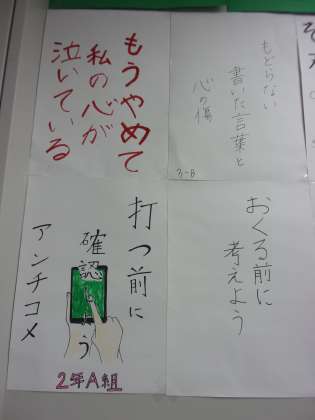 もうやめて
私の心が
泣いている
もどらない
書いた言葉と
心の傷
3-B
打つ前に
確認しよう
アンチコメ
2年A組
おくる前に
考えよう